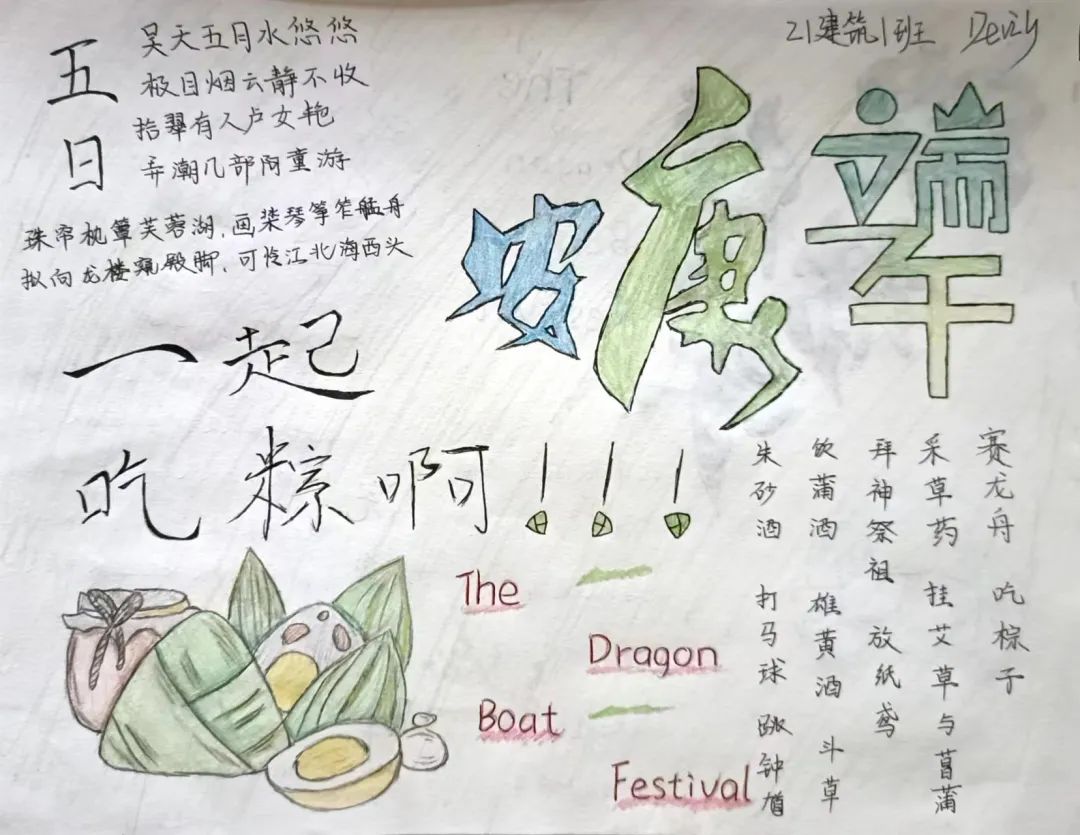 21建筑1班 Devily
端午
安康
五日
昊天五月水悠悠
极目烟云静不收
拾翠有人卢女艳
弄潮几部阿童游
珠帘枕簟芙蓉湖，画桨琴筝笮艋舟
拟向龙楼窥殿脚，可怜江北海西头
一起
吃粽啊！！！
The
Dragon
Boat
Festival
赛龙舟 吃粽子
采草药 挂艾草与菖蒲
拜神祭祖 放纸鸢
饮蒲酒 雄黄酒 斗草
朱砂酒 打马球 跳钟馗